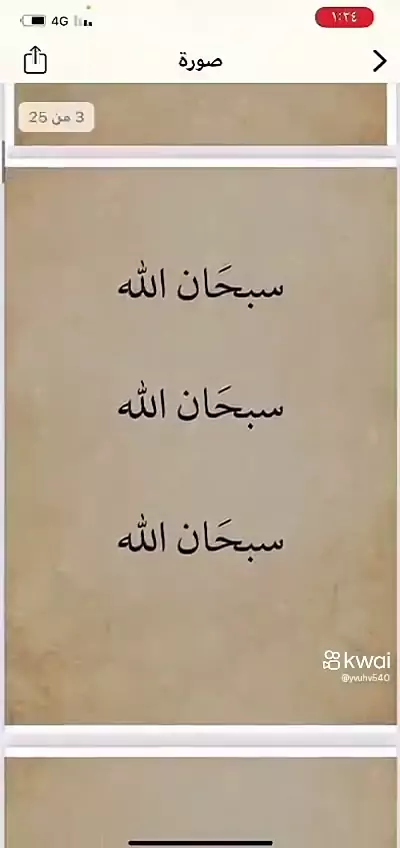 4G
١:٣٤
صورة
3 من 25
سبحَان الله
سبحَان الله
سبحَان الله
kwai
@yvuhv540